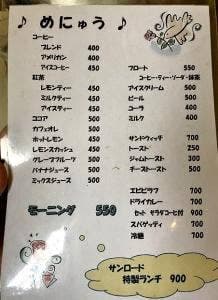 ♪ めにゅう ♪
コーヒー
ブレンド 400
アメリカン 400
アイスコーヒー 450
紅茶
レモンティー 450
ミルクティー 450
アイスティー 450
ココア 500
カフェオレ 500
ホットレモン 450
レモンスカッシュ 450
グレープフルーツ 500
バナナジュース 500
ミックスジュース 500
モーニング 550
フロート 550
コーヒー・ティー・ソーダ・抹茶
アイスクリーム 500
ビール 500
コーラ 400
ミルク 400
サンドウィッチ 700
トースト 250
ジャムトースト 300
チーズトースト 500
エビピラフ 700
ドライカレー 700
セット サラダコーヒー付 900
スパゲッティ 700
冷麺 700
サンロード
特製ランチ 900